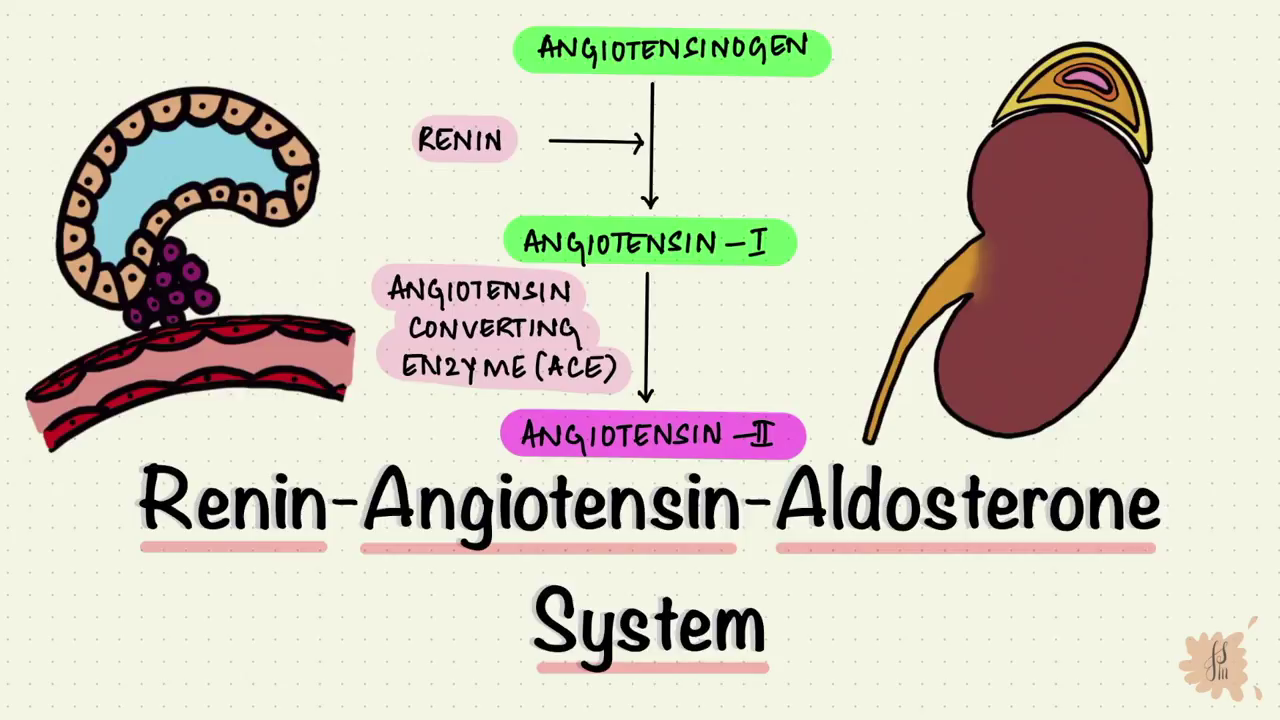 ANGIOTENSINOGEN
RENIN
ANGIOTENSIN - I
ANGIOTENSIN
CONVERTING
ENZYME (ACE)
ANGIOTENSIN - II
Renin-Angiotensin-Aldosterone
System